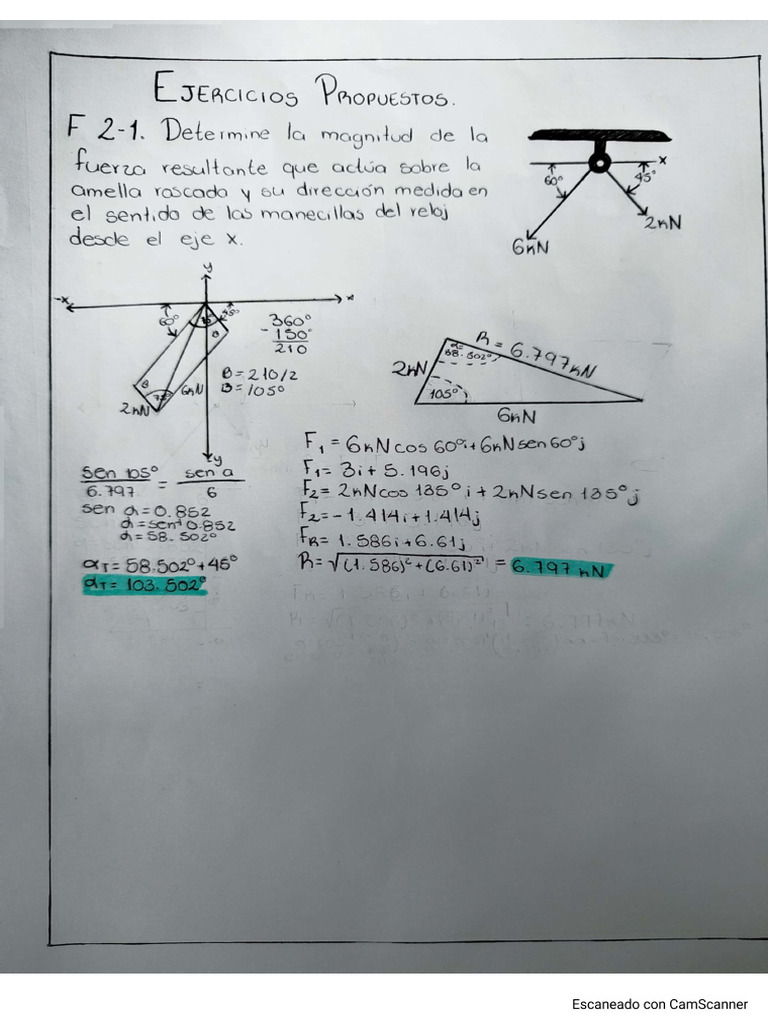 EJERCICIOS PROPUESTOS.
F 2-1. Determine la magnitud de la
fuerza resultante que actúa sobre la
amella roscada y su dirección medida en
el sentido de las manecillas del reloj
desde el eje x.
x
60°
45°
2kN
6kN
y
-x
x
60°
75°
45°
θ
θ
75°
6kN
2kN
-y
360°
-150°
210
θ = 210/2
θ = 105°
α=
58.502°
R = 6.797kN
2kN
105°
6kN
sen 105° / 6.797 = sen α / 6
sen α = 0.852
α = sen⁻¹ 0.852
α = 58.502°
αT = 58.502° + 45°
αT = 103.502°
F1 = 6kN cos 60°i + 6kN sen 60°j
F1 = 3i + 5.196j
F2 = 2kN cos 135°i + 2kN sen 135°j
F2 = -1.414i + 1.414j
FR = 1.586i + 6.61j
R = √(1.586)² + (6.61)² = 6.797 kN
Escaneado con CamScanner